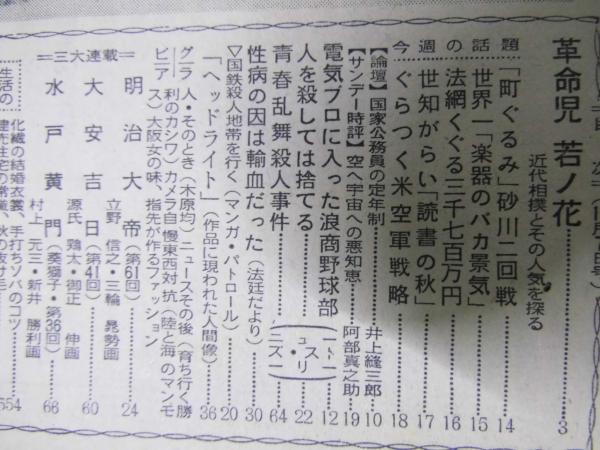 革命児 若ノ花……3
近代相撲とその人気を探る
今週の話題
「町ぐるみ」砂川二回戦……14
世界一「楽器のバカ景気」……15
法網くぐる三千七百万円……16
世知がらい「読書の秋」……17
ぐらつく米空軍戦略……18
【論壇】国家公務員の定年制……井上縫三郎…10
【サンデー時評】空へ宇宙への悪知恵……阿部真之助…19
ニュース・ストーリーズ
電気ブロに入った浪商野球部……12
人を殺しては捨てる……22
青春乱舞殺人事件……64
性病の因は輸血だった(法廷だより)……30
▽国鉄殺人地帯を行く(マンガ・パトロール)……20
「ヘッドライト」(作品に現われた人間像)……36
グラビア
人・そのとき(木原均)ニュースその後(育ち行く勝利のカシワ)カメラ自慢東西対抗(陸と海のマンモス)大阪女の味、指先が作るファッション
=三大連載=
明治大帝(第61回)立野信之・三輪晁勢画……24
大安吉日(第41回)源氏鶏太・御正伸画……60
水戸黄門(葵獅子・第36回)村上元三・新井勝利画……66
生活の
化繊の結婚衣裳、手打ちソバのコツ
554